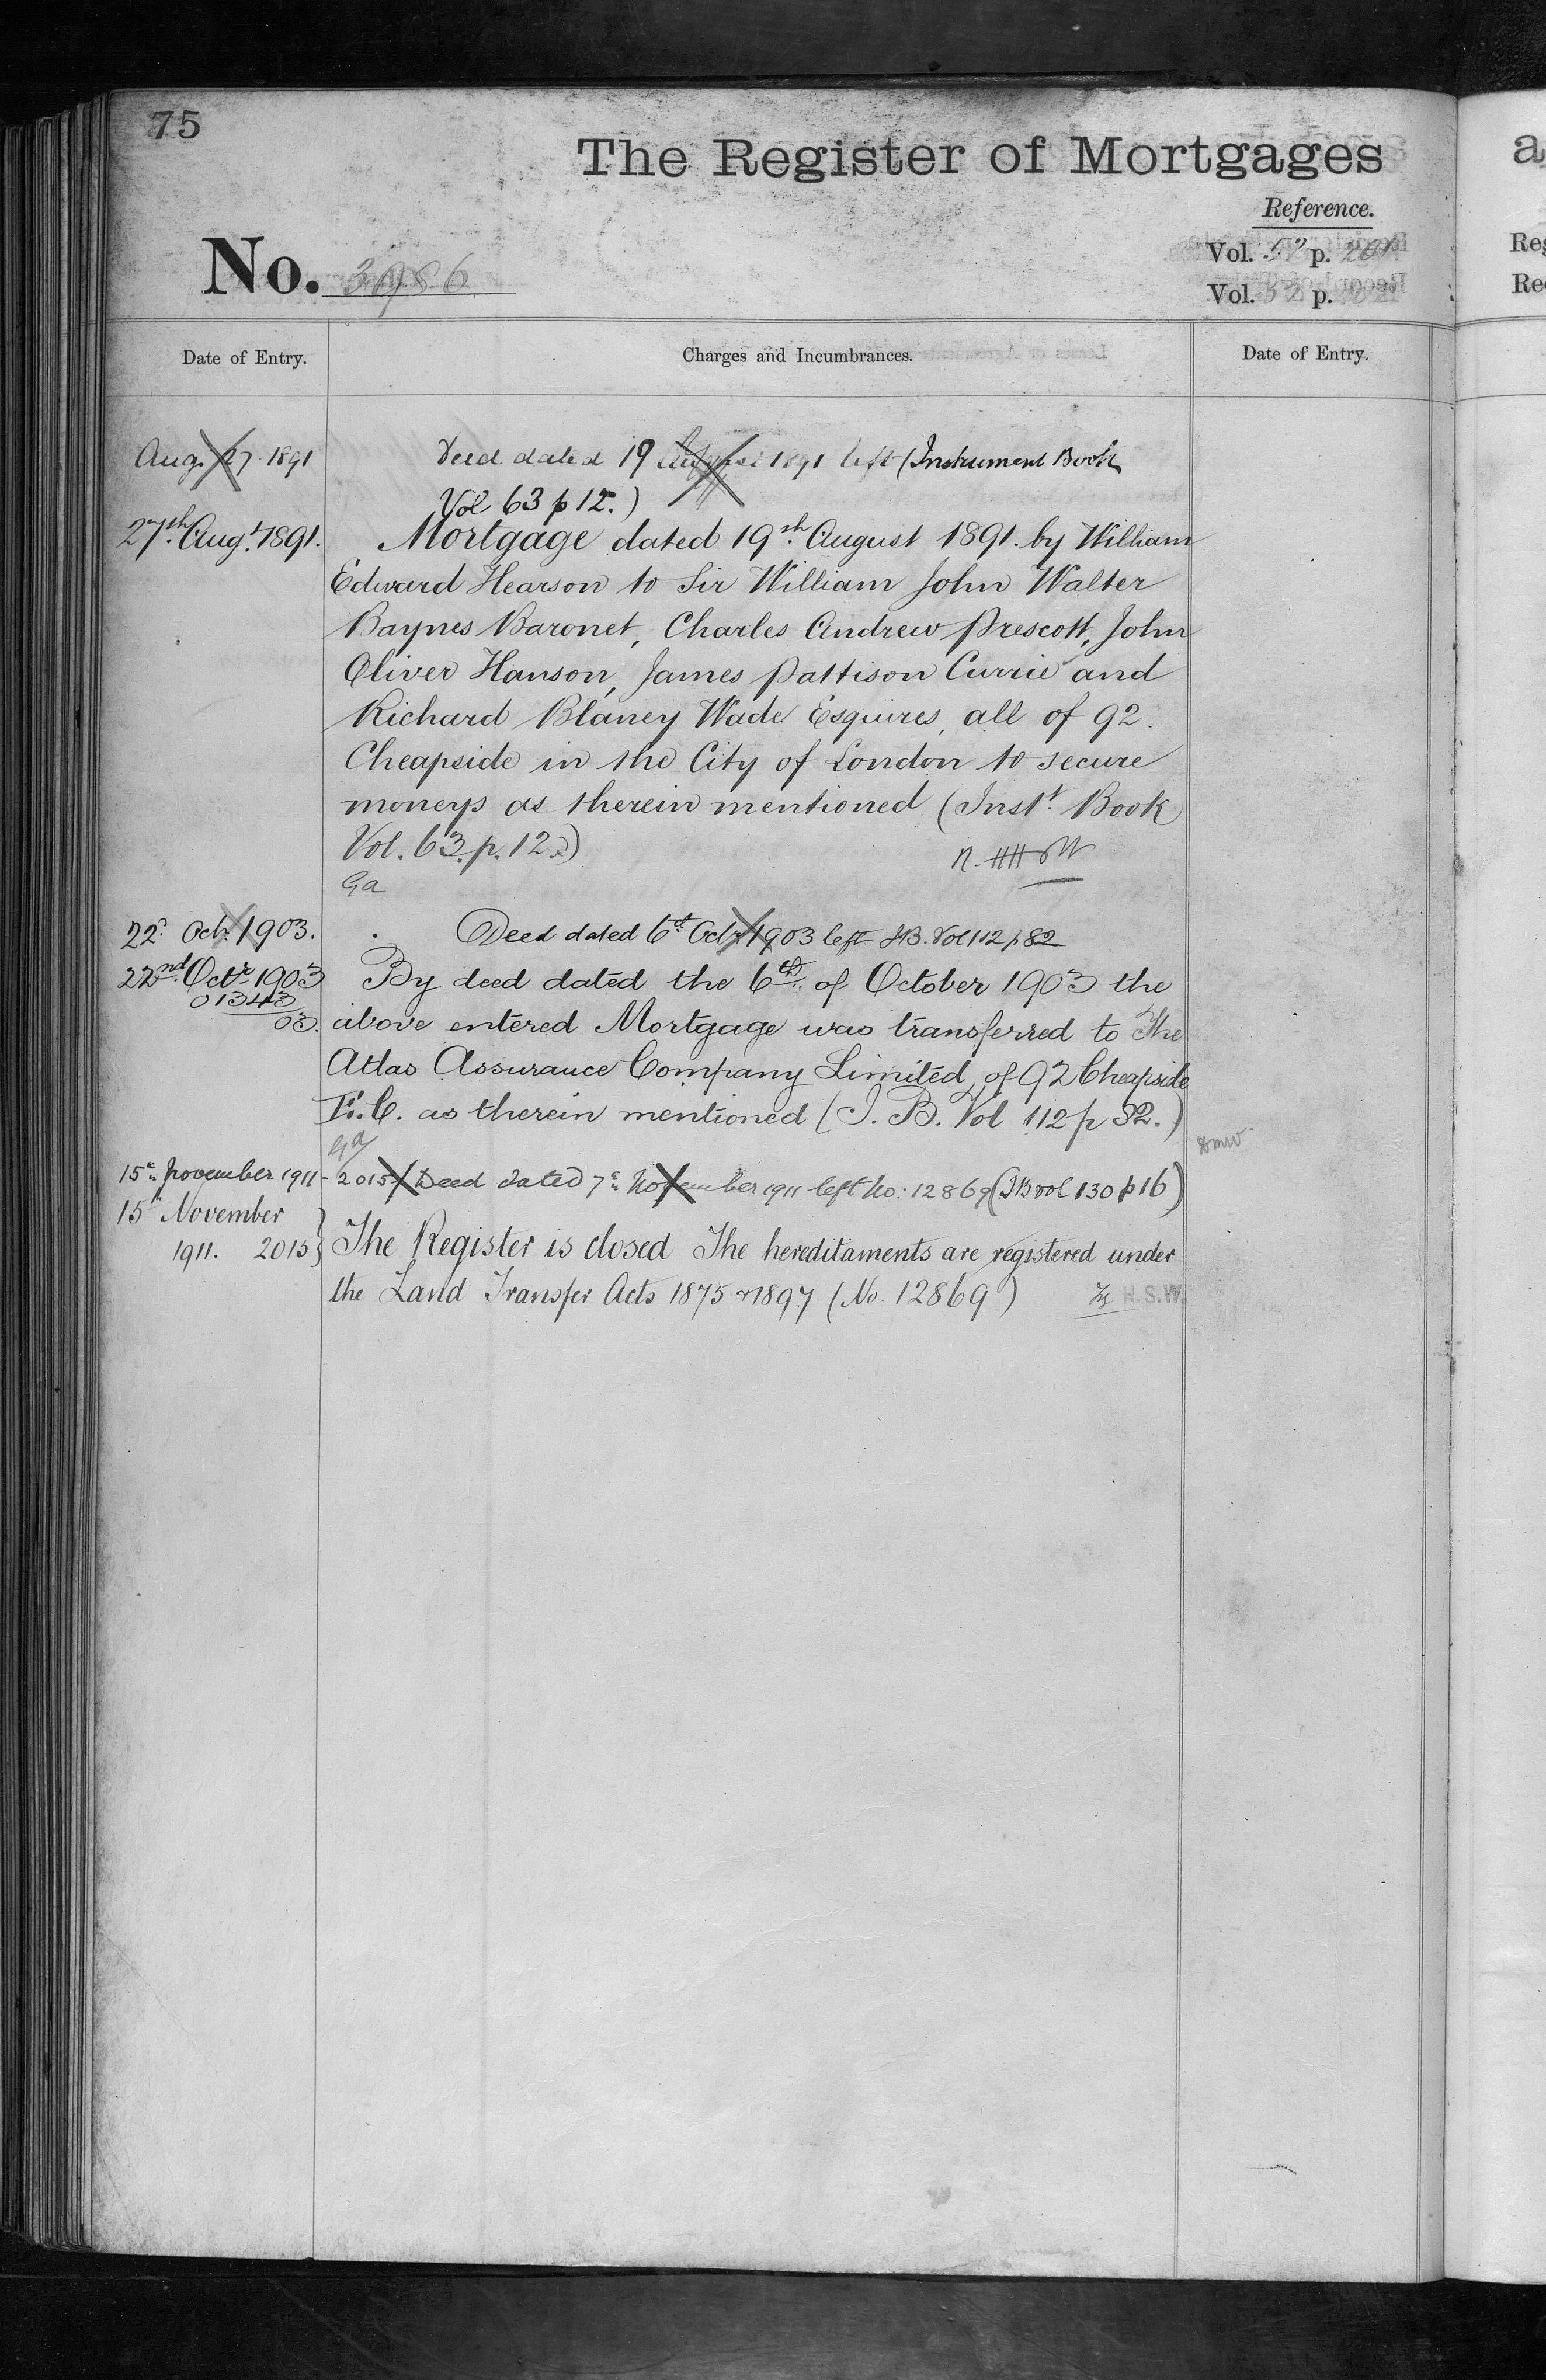 75
The Register of Mortgages
Reference.
No. 3986
Vol. 52 p. 201
Vol. 52 p.
Date of Entry.
Charges and Incumbrances.
Date of Entry.
Aug. 27. 1891 Deed dated 19 August 1891 left (Instrument Book
Vol 63 p 12.)
27th Augt. 1891. Mortgage dated 19th August 1891. by William
Edward Hearson to Sir William John Walter
Baynes Baronet, Charles Andrew Prescott, John
Oliver Hanson, James Pattison Currie and
Richard Blaney Wade Esquires, all of 92.
Cheapside in the City of London to secure
moneys as therein mentioned (Inst. Book
Vol. 63. p. 12.)
Ga
22d Oct. 1903. Deed dated 6th Oct 1903 left I.B. Vol 112 p 82
22nd Octr 1903 By deed dated the 6th of October 1903 the
01343
03. above entered Mortgage was transferred to The
Atlas Assurance Company Limited, of 92 Cheapside
E.C. as therein mentioned (I. B. Vol 112 p 82.)
Ga
15th November 1911 - 2015 Deed dated 7th November 1911 left No: 12869 (IB vol 130 p 16)
15th November
1911. 2015 } The Register is closed The hereditaments are registered under
the Land Transfer Acts 1875 & 1897 (No. 12869) H.S.W.
a
Reg
Re